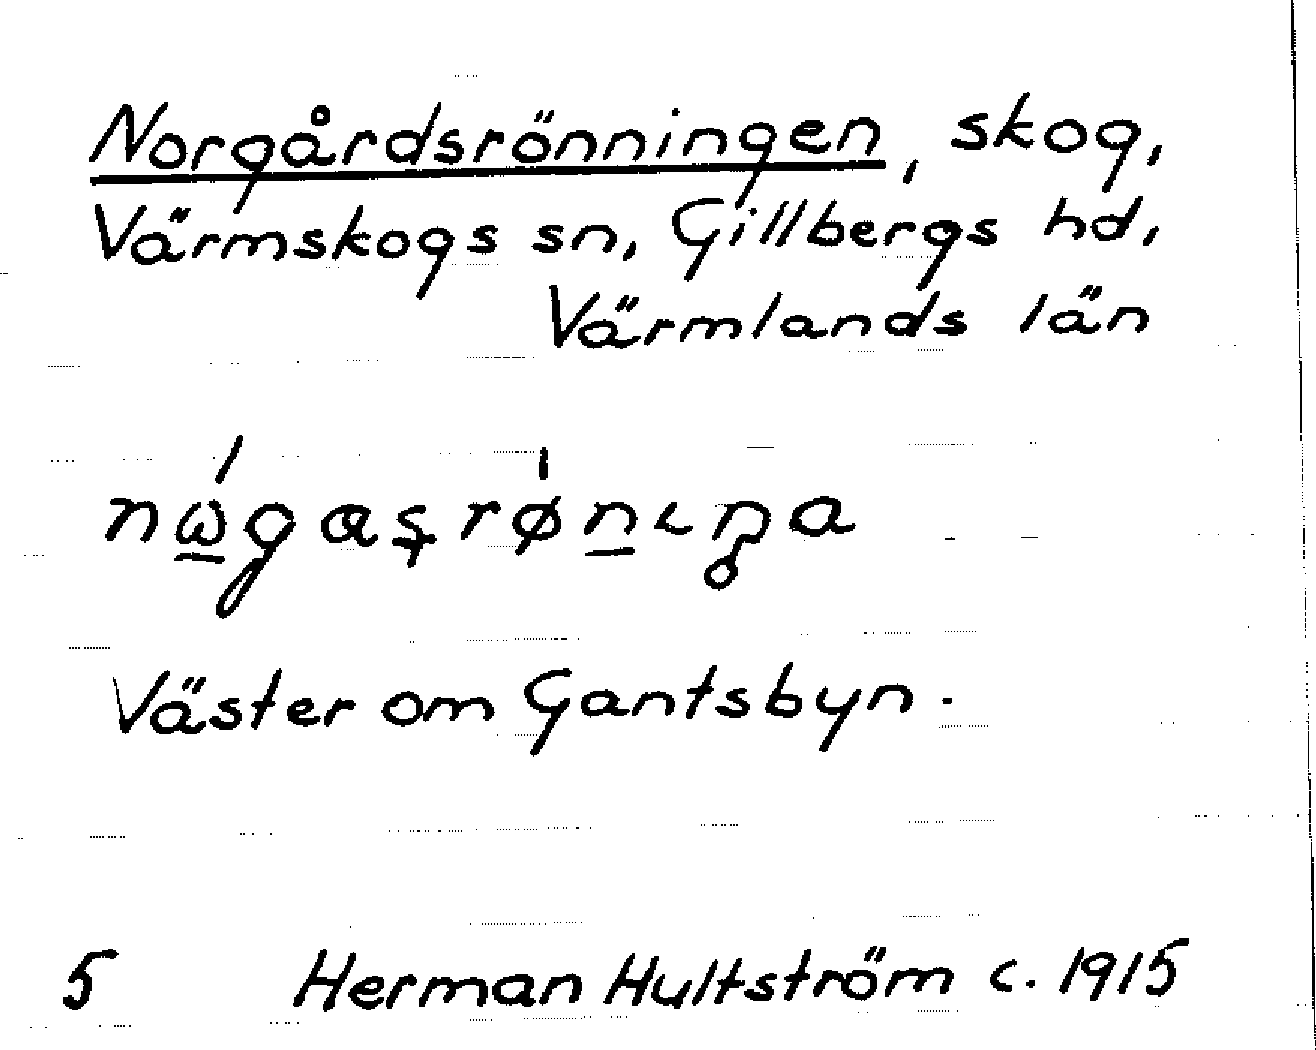 Norgårdsrönningen, skog,
Värmskogs sn, Gillbergs hd,
Värmlands län
nώ̲gɑȿrǿn̲ɩŋa
Väster om Gantsbyn.
5 Herman Hultström c. 1915